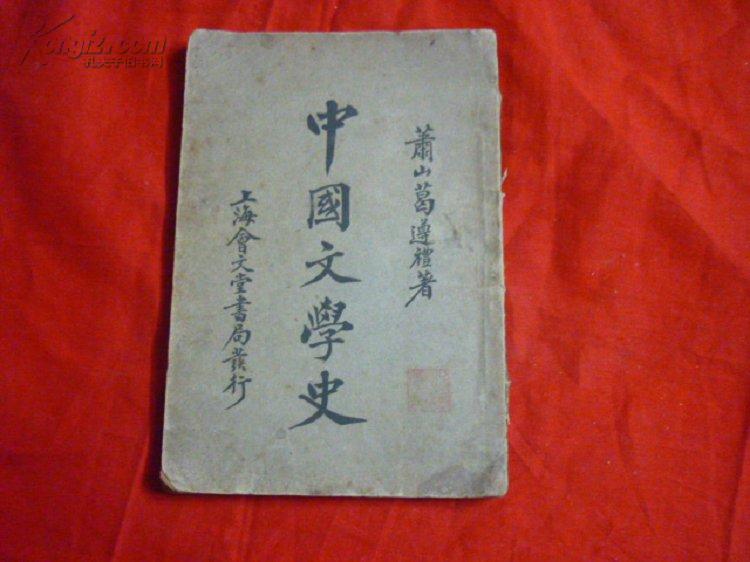 蕭山葛遵禮著
中國文學史
上海會文堂書局發行
Kongfz.com
孔夫子旧书网